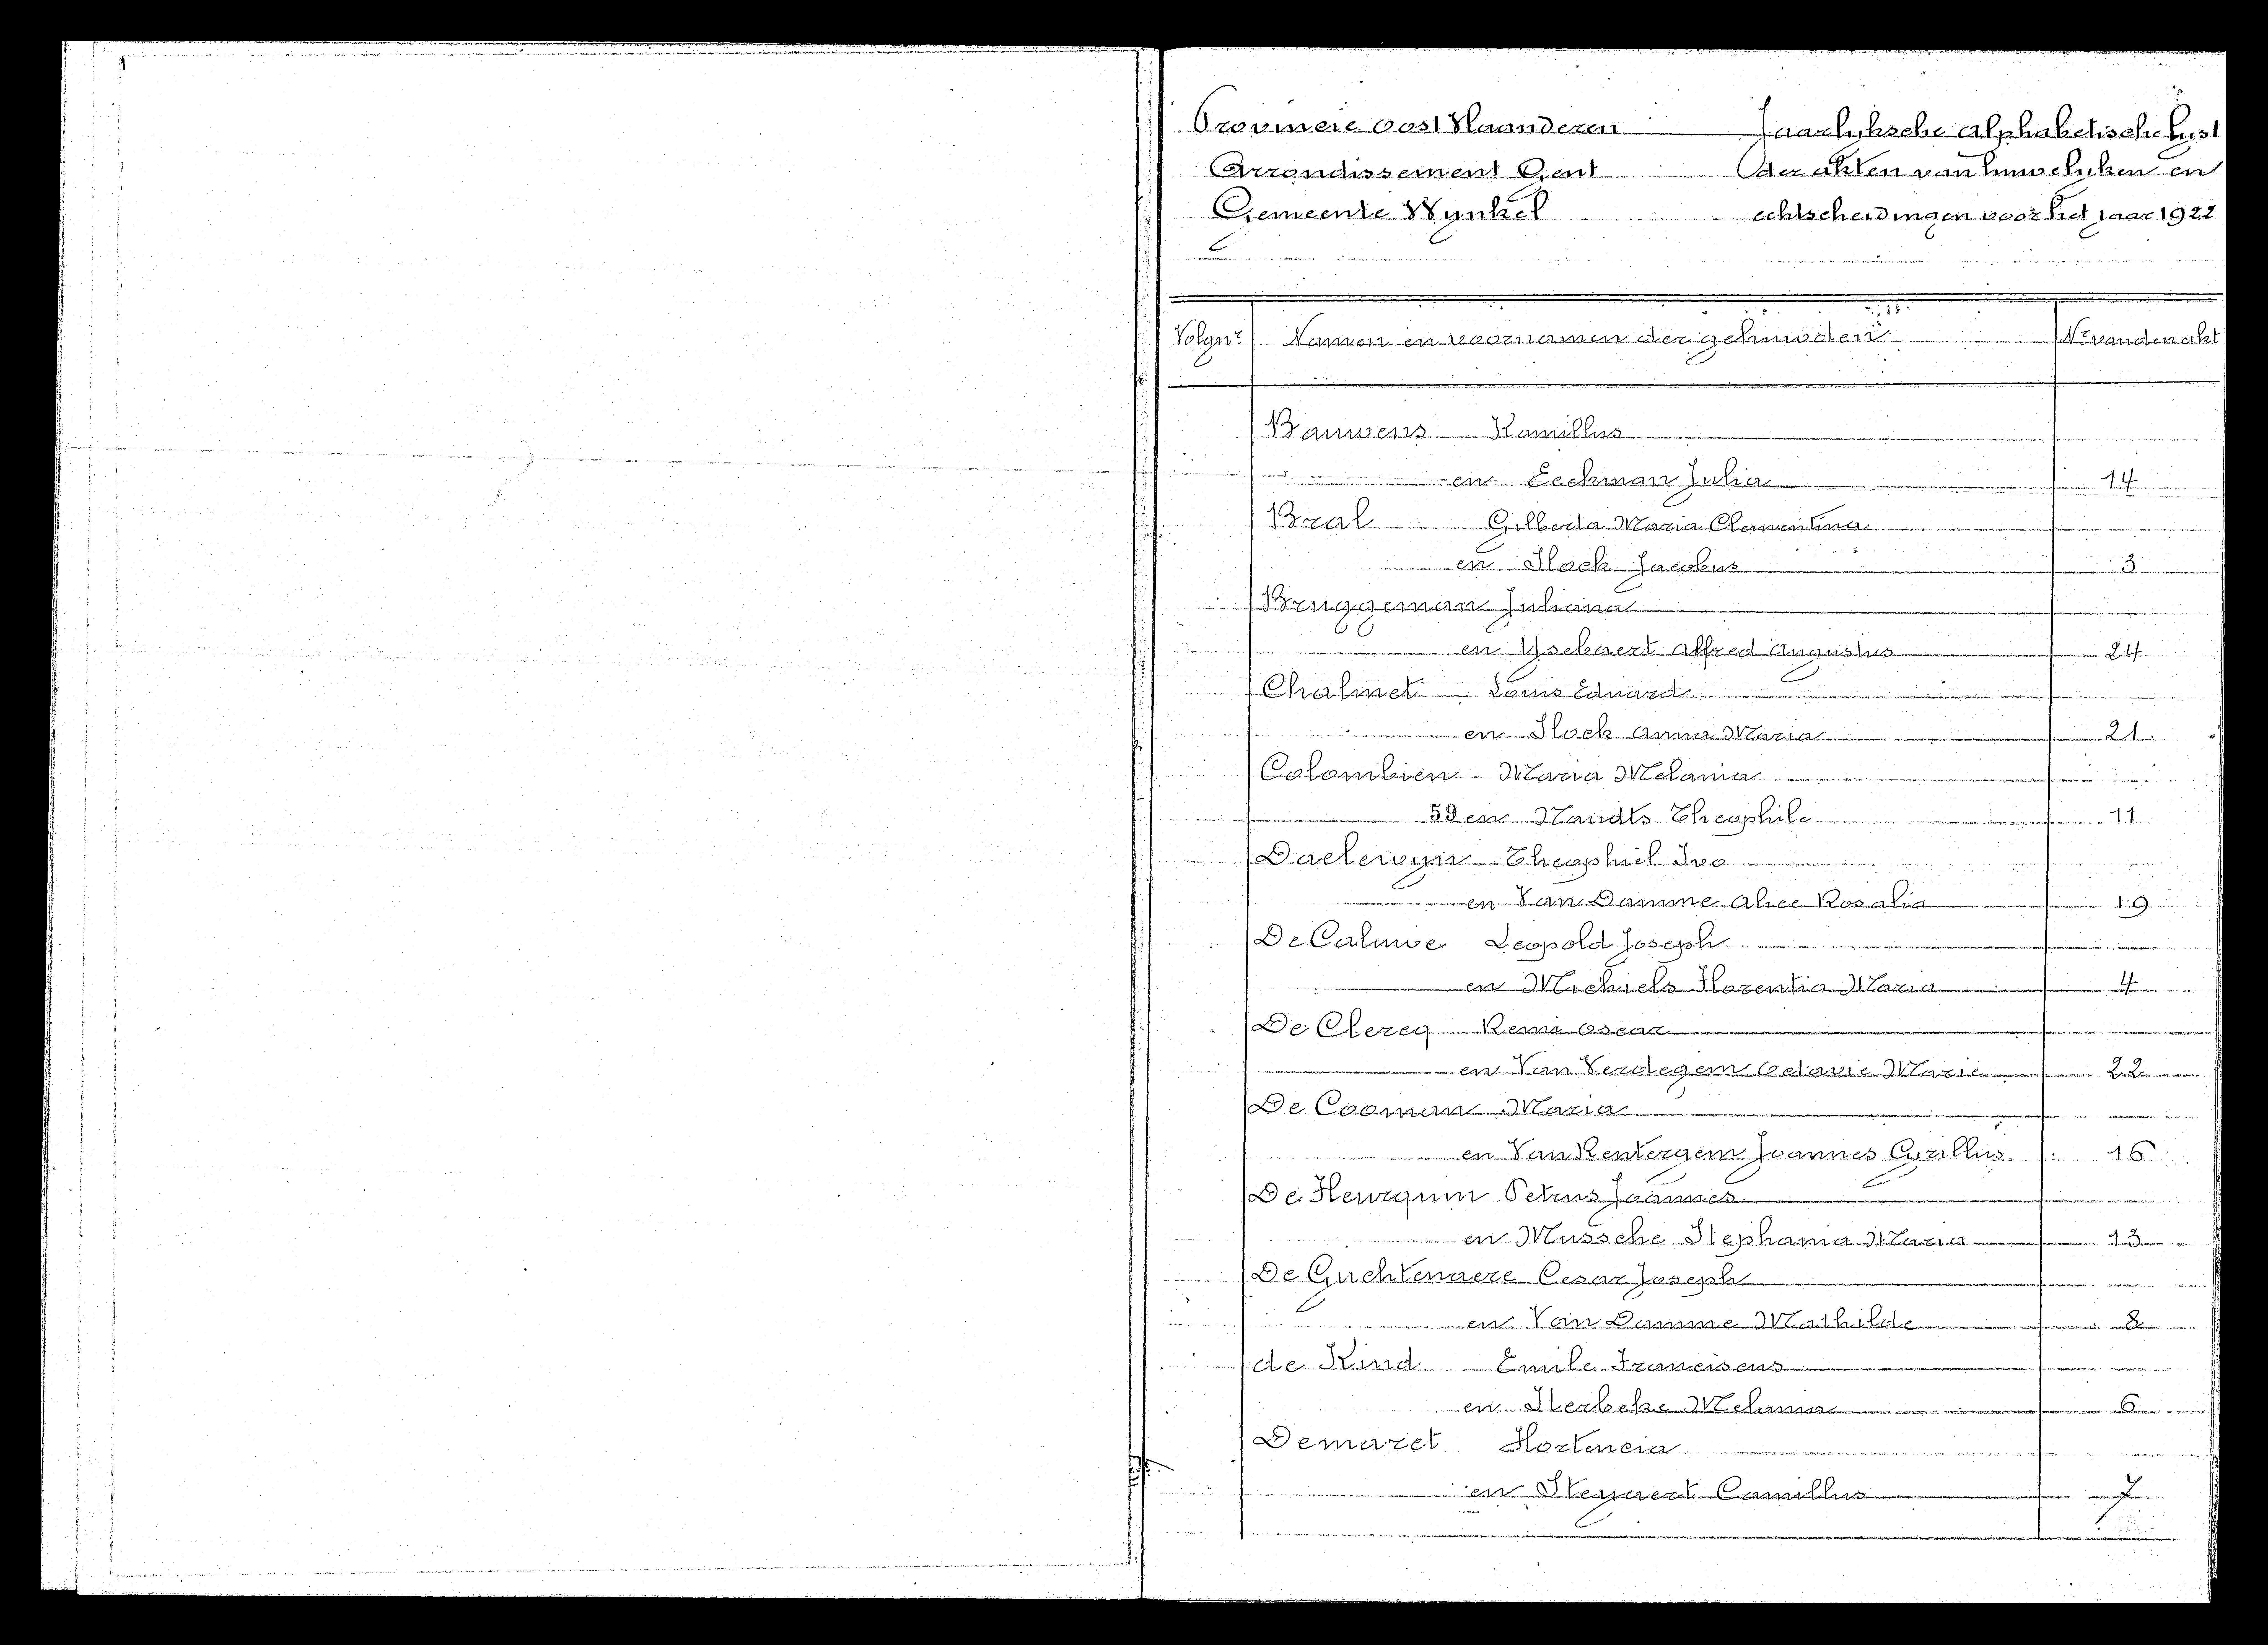 Provincie Oost Vlaanderen Jaarlyksche Alphabetische Lyst
Arrondissement Gent der akten van huwelyken en
Gemeente Wynkel echtscheidingen voor het jaar 1922
Volgnr Namen en voornamen der gehuwden Nr van den akt
Bauwens Kamillus
en Eeckman Julia 14
Bral Gilberta Maria Clementina
en Stock Jacobus 3
Bruggeman Juliana
en Ysebaert Alfred Augustus 24
Chalmet Louis Eduard
en Stock Anna Maria 21
Colombien Maria Melania
en Theophile 11
Daelewyn Theophiel Ivo
en Van Damme Alice Rosalia 19
De Caluwe Leopold Joseph
en Michiels Florentia Maria 4
De Clercq Remi Oscar
en Van Verdegem Octavie Marie 22
De Cooman Maria
en Van Rentergem Joannes Cyrillus 16
De Petrus Joannes
en Mussche Stephania Maria 13
De Guchtenaere Cesar Joseph
en Van Damme Mathilde 8
de Kind Emile Franciscus
en Sterbeke Melania 6
Demaret Hortencia
en Steyaert Camillus 7